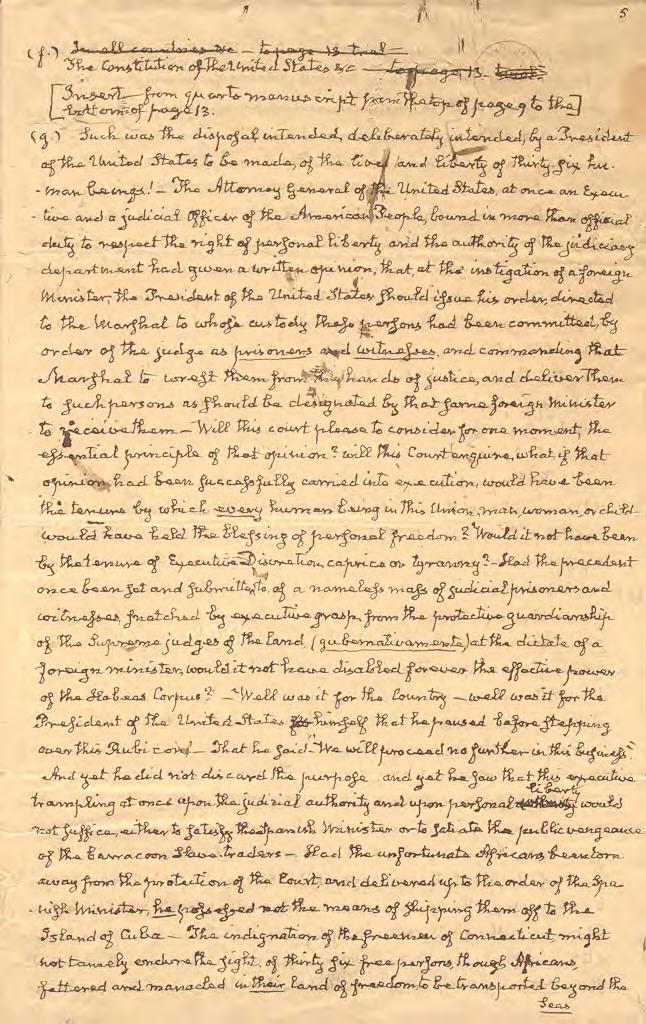 5
(f.) Small countries &c — to page 13. trial
The Constitution of the United States &c — to page 13.
[Insert from quarto manuscript from the top of page 9 to the
bottom of page 13.]
(g.) Such was the disposal intended, deliberately intended, by a President
of the United States to be made, of the lives and liberty of thirty six hu-
-man beings! — The Attorney General of the United States, at once an Execu-
-tive and a judicial officer of the American People, bound in more than official
duty to respect the right of personal liberty and the authority of the judiciary
department had given a written opinion, that, at the instigation of a foreign
Minister, the President of the United States should issue his order, directed
to the Marshal to whose custody these persons had been committed, by
order of the judge as prisoners and witnesses, and commanding that
Marshal to wrest them from the hands of justice, and deliver them
to such persons as should be designated by that same foreign minister
to receive them — Will this court please to consider for one moment, the
essential principle of that opinion? will this Court enquire, what, if that
opinion had been successfully carried into execution, would have been
the tenure by which every human being in this Union, man, woman, or child
would have held the blessing of personal freedom? Would it not have been
by the tenure of Executive Discretion, caprice or tyranny? — Had the precedent
once been set and submitted to, of a nameless mass of judicial prisoners and
witnesses, snatched by executive grasp, from the protective guardianship
of the Supreme judges of the land (gubernativamente) at the dictate of a
foreign minister, would it not have disabled forever the effective power
of the Habeas Corpus? — Well was it for the Country — well was it for the
President of the United States himself that he paused before stepping
over this Rubicon! — That he said "We will proceed no further in this business."
And yet he did not discard the purpose and yet he saw that this executive
liberty
trampling at once upon the judicial authority and upon personal would
not suffice, either to satisfy the Spanish Minister or to satiate the public vengeance
of the barracoon slave-traders — Had the unfortunate Africans, been torn
away from the protection of the Court, and delivered up to the order of the Spa
-nish Minister, he possessed not the means of shipping them off to the
Island of Cuba — The indignation of the freemen of Connecticut, might
not tamely endure the sight, of thirty six free persons, though Africans,
fettered and manacled in their land of freedom to be transported beyond the
Seas